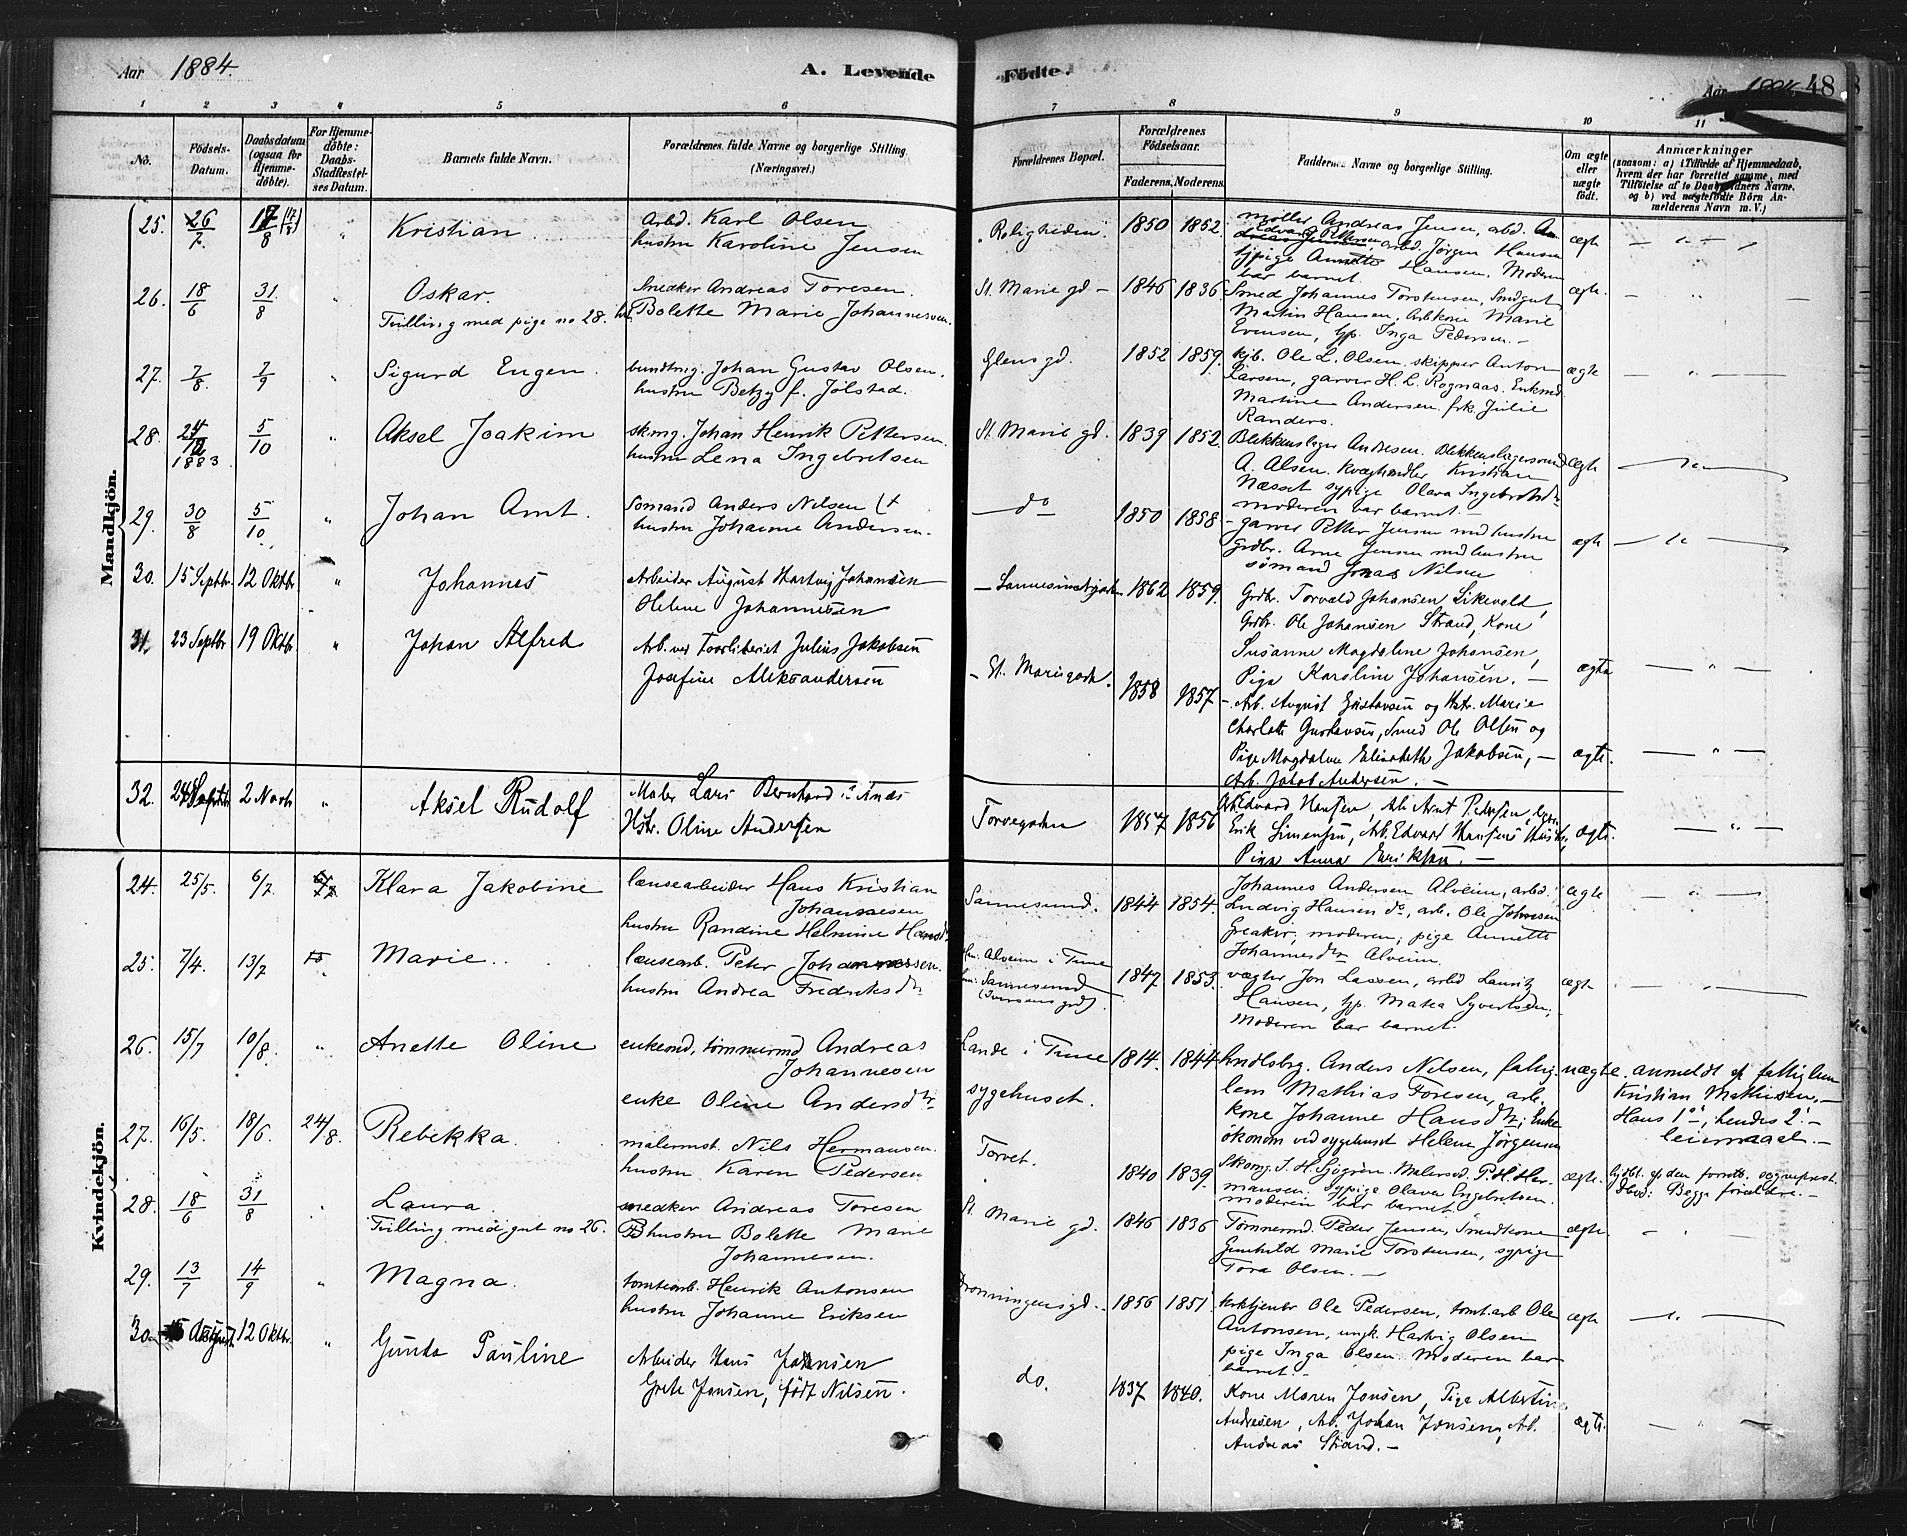 Aar 1884.
A. Levende
Fødte.
Aar 1884.
48
1 2 3 4 5 6 7 8 9 10 11
No.
Fødsels-
Datum.
Daabsdatum
(ogsaa for
Hjemme-
døbte).
For Hjemme-
døbte:
Daabs-
Stadfæstel-
ses Datum.
Barnets fulde Navn.
Forældrenes fulde Navne og borgerlige Stilling
(Næringsvei.)
Forældrenes Bopæl.
Forældrenes
Fødselsaar.
Faderens. Moderens.
Faddernes Navne og borgerlige Stilling.
Om ægte
eller
uægte
født.
Anmærkninger
(saasom: a) i Tilfælde af Hjemmedaab,
hvem der har forrettet samme, med
Tilføielse af to Daabsvidners Navne,
og b) ved uægtefødte Børn An-
melderens Navn m. V.)
Mandkjön.
25. 26/7. 17/8 (17/8) " Kristian
Arbd. Karl Olsen
hustru Karoline Jensen
Roligheden. 1850 1852.
møller Andreas Jensen, arbd.
Edvard Pettersen, arbd. Jørgen Hansen
tjpige Annette Hansen. Moderen
bar barnet.
ægte — " —
26. 18/6 31/8 " Oskar.
Tvilling med pige no 28.
Snedker Andreas Toresen.
hu. Bolette Marie Johannesen.
St. Marie gd — 1846 1836
Smed Johannes Torstensen, Smdgut
Martin Hansen, Arbkone Marie
Evensen, tjp. Inga Pedersen. —
ægte. — " —
27. 7/8. 7/9 " Sigurd Eugen.
bundtmg. Johan Gustav Olsen.
hustru Betzy f. Jølstad.
Glens gd. 1852 1859.
kjb. Ole L. Olsen, skipper Anton
Larsen, garver H. L. Rognaas. Enkmd.
Martine Andersen. frk. Julie
Randers.
ægte — " —
28. 24/12 1883. 5/10 " Aksel Joakim
skmg. Johan Henrik Pettersen.
hustru Lena Ingebretsen
St. Marie gd. 1839 1852.
Blekkenslager Andresen. Blekkenslagersvend
A. Olsen. kvæghandler Kristian
Næsset sypige Olava Ingebretsdr
moderen bar barnet. —
ægte. — " —
29. 30/8 5/10 " Johan Arnt.
Sømand Anders Nilsen (+
hustru Johanne Andersen.
— do 1850 1858 —
garver Petter Jensen med hustru
Grdbr. Arne Jensen med hustru
sømand Jonas Nilsen
ægte — " —
30. 15 Septbr. 12 Oktbr. " Johannes
Arbeider August Hartvig Johansen
Helene Johannesen
— Sannesundgaden 1862 1859.
Grdbr. Torvald Johansen Likevold,
Grdbr. Ole Johansen Strand, Kone
Susanne Magdalene Johansen,
Pige Karoline Johansen. —
ægte — " —
31. 23 Septbr 19 Oktbr. " Johan Alfred
Arb. ved Toldberiet Julius Jakobsen
Josefine Aleksandersen
— St. Mariegade. 1858 1857 —
Arb. August Gustavsen og Hstr. Marie
Charlotte Gustavsen, Smed Ole Olsen og
Pige Magdalene Elisabeth Jakobsen, —
Arb. Jakob Andersen. —
ægte. — " —
32. 24 Septbr 2 Novbr. " Aksel Rudolf
Maler Lars Bernhard
Hstr. Oline Andersen
Torvegaden 1857 1856
Arb. Edvard Hansen, Arb. Arnt Pedersen,
Erik Simensen, Arb. Edvard Hansens Hustru,
Pige Anna Eriksen. —
ægte. — " —
Kvindekjön.
24. 25/5. 6/7. 6/7 Klara Jakobine
lænsearbeider Hans Kristian
Johannesen
hustru Randine Helmine Hansdr
Sannesund. 1844 1854.
Johannes Andersen Alveim, arbd.
Ludvig Hansen do, arb. Ole Johnsen
Greaker, moderen, pige Annette
Johannesdtr Alveim.
ægte — " —
25. 7/4. 13/7 " Marie.
lænsearb. Peter Johannessen.
hustru Andrea Fredriksdtr
Han: Alveim i Tune
hun: Sannesund
(Iversens grd). 1847 1853.
vægter Jon Lassen, arbd Lauritz
Hansen, tjp. Matea Syvertsen,
Moderen bar barnet.
ægte — " —
26. 15/7 10/8. " Anette Oline
enkemd, tømmermd Andreas
Johannesen
enke Oline Andersdtr
Lande i Tune
sygehuset. 1814. 1844
Hndlsbrg. Anders Nilsen, fattig-
lem Mathias Toresen, arb.
kone Johanne Hansdtr, Enke
økonom ved sygehuset Helene Jørgensen
uægte. anmeldt af fattiglem
Kristian Mathisen. —
Hans 1ste, hendes 2det
leiermaal. —
27. 16/5. 18/6. 24/8. Rebekka.
malermst. Nils Hermansen.
hustru Karen Pedersen
Torvet. 1840 1839.
Skomg. S. H. Sjøgren. Malersvd. P. H. Her-
mansen, sypige Olava Engebretsen.
moderen bar barnet
ægte. hjdbt. af den forrett. sogneprest.
Hvd: Begge forældre. —
28. 18/6 31/8 " Laura.
Tvilling med gut no 26.
snedker Andreas Toresen
hustru Bolette Marie
Johannesen.
St. Marie gd. 1846 1836
Tømmermd. Peder Jensen, Smedkone
Gunhild Marie Torstensen, sypige
Tora Olsen. —
ægte. — " —
29. 13/7 14/9 " Magna.
tomtearb. Henrik Antonsen
hustru Johanne Eriksen
Dronningensgd. 1856 1851
kirketjener Ole Pedersen, tomt.arb Ole
Antonsen, ungk. Hartvig Olsen
pige Inga Olsen. Moderen bar
barnet. —
ægte — " —
30. 15 August. 12 Oktbr. " Gunda Pauline
Arbeider Hans Jansen
Grete Jansen, født Nilsen.
do. 1837 1840.
Kone Maren Jansen, Pige Albertine
Andresen, Arb. Johan Jansen, Arb.
Andreas Strand. —
ægte. — " —